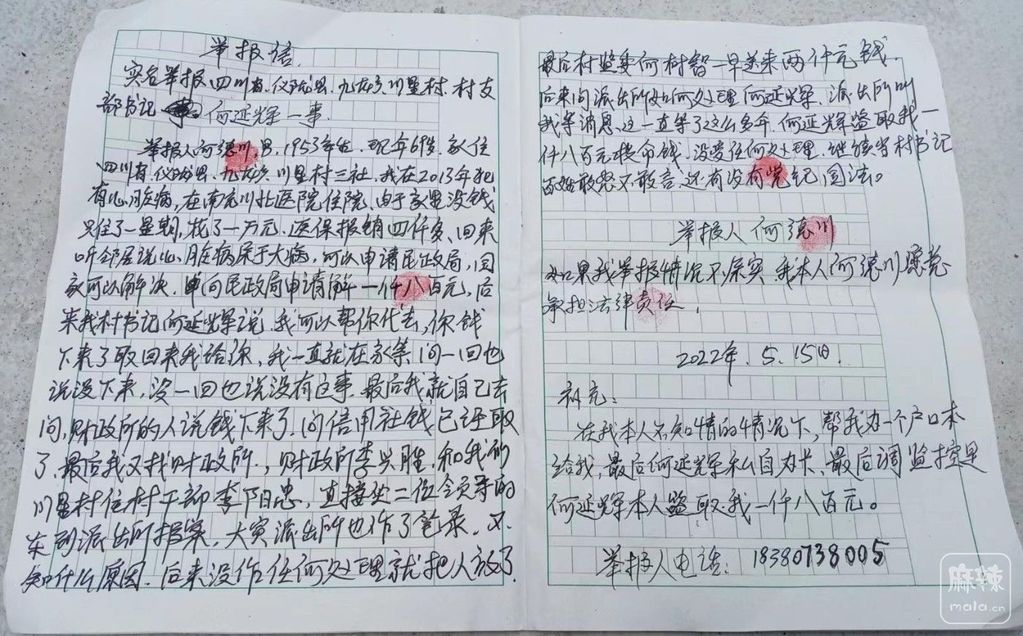 举报信
实名举报四川省、仪陇县、九龙乡川星村、村支
部书记 何延辉一事.
举报人何德川男,1953年生,现年69岁,家住
四川省、仪陇县、九龙乡川星村三社。我在2013年把
有心脏病,在南充川北医院住院,由于家里没钱
只住了一星期,花了一万元,医保报销四仟多、回来
听邻居说心脏病属于大病,可以申请民政局,国
家可以解决,申向民政局申请解一仟八百元,后
来我村书记何延辉说,我可以帮你代去,你钱
下来了取回来我给你,我一直就在家等,问一回也
说没下来,没一回也说没有这事.最后我就自己去
问,财政所的人说钱下来了.问信用社钱已经取
了,最后我又找财政所.,财政所李兴胜.和我们
川星村住村干部李阳忠,直接坐二位领导的
车到派出所报案,大寅派出所也作了笔录,不
知什么原因.后来没作任何处理就把人放了.
最后村监委何树智一早送来两仟元钱.
后来问派出所如何处理何延辉,派出所叫
我等消息.这一直等了这么多年.何延辉盗取我一
仟八百元救命钱,没受任何处理.继续当村书记
百姓敢怒不敢言,还有没有党纪国法。
举报人何德川
如果我举报情况不属实,我本人何德川愿意
承担法律责任,
2022年.5.15日.
补充:
在我本人不知情的情况下,帮我办一个户口本
给我,最后何延辉私自办卡,最后调监控是
何延辉本人盗取我一仟八百元。
举报人电话:18380738005
麻辣
mala.cn